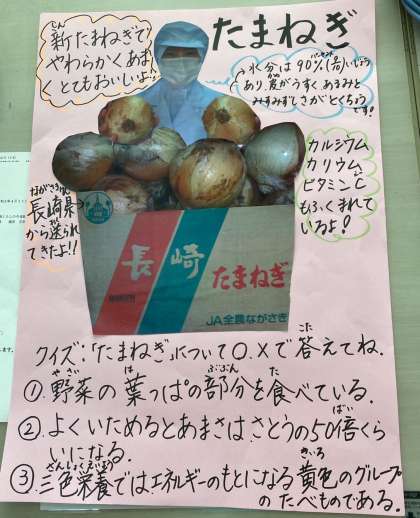 たまねぎ
新たまねぎで
やわらかくあま
くとてもおいしいよ!!
水分は90%(名)いじょう
あり、皮がうすく、あまみと
みずみずしさがとくちょう
です!
カルシウム
カリウム
ビタミンC
もふくまれて
いるよ!
ながさきけん
長崎県
から送られ
てきたよ!!
長崎
たまねぎ
JA全農ながさき
クイズ:「たまねぎ」について○、×で答えてね。
①野菜の葉っぱの部分を食べている。
②よくいためるとあまさはさとうの50倍くら
いになる。
③三色栄養ではエネルギーのもとになる黄色のグループ
のたべものである。